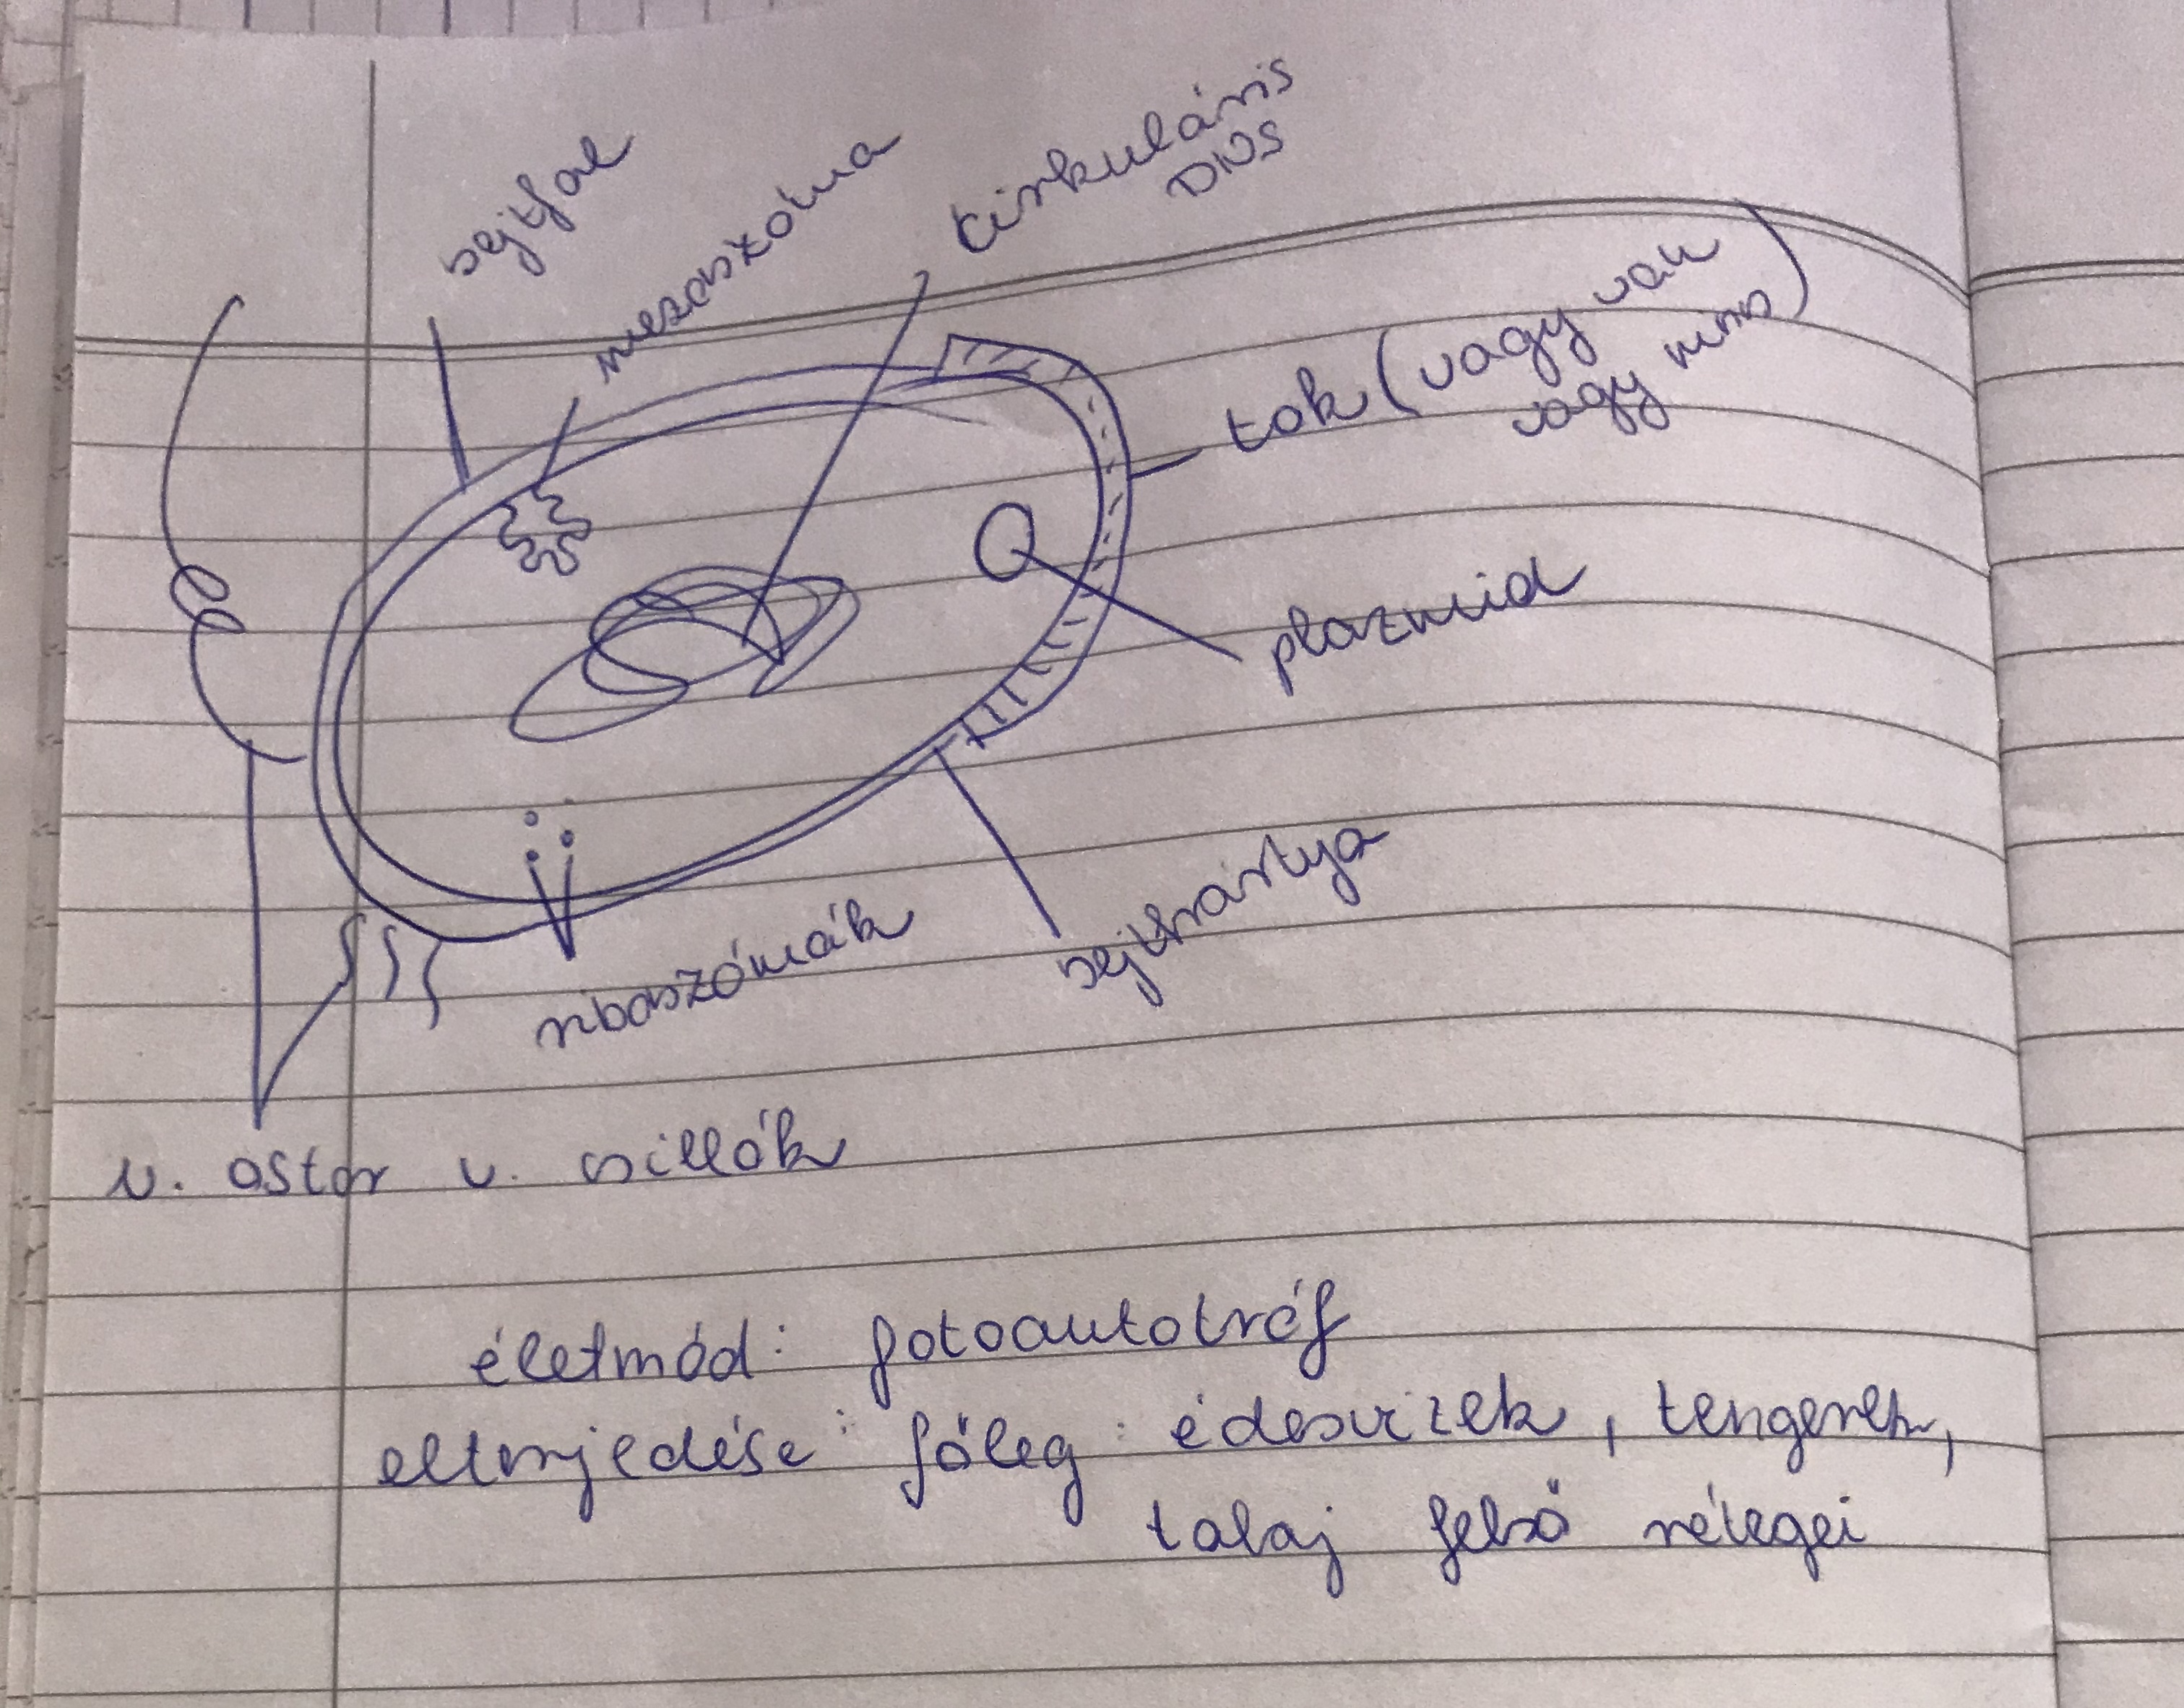 sejtfal
mezoszóma
cirkuláris
DNS
tok (vagy van
vagy nincs)
plazmid
sejthártya
riboszómák
v. ostor v. csillók
életmód: fotoautotróf
elterjedése: főleg: édesvizek, tengerek,
talaj felső rétegei